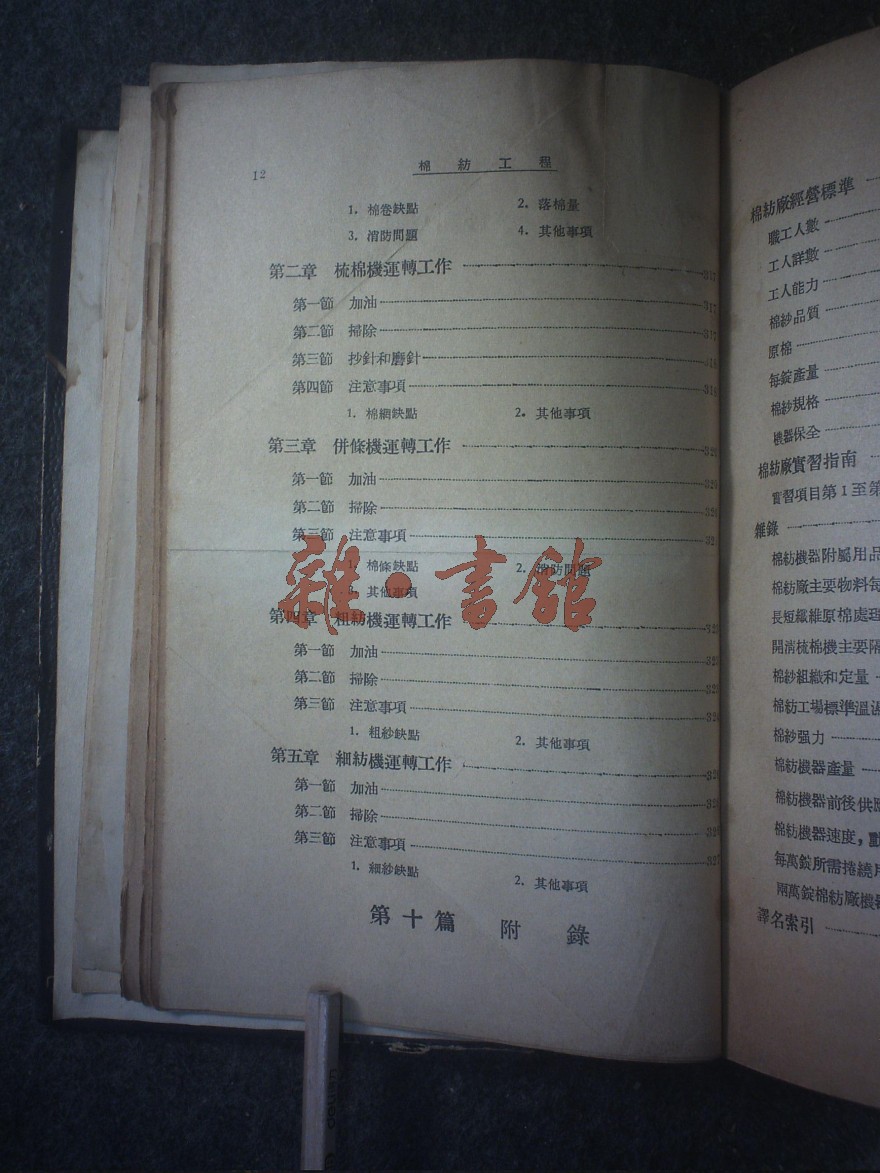 12
棉紡工程
1. 棉卷缺點 2. 落棉量
3. 消防問題 4. 其他事項
第二章 梳棉機運轉工作 317
第一節 加油 317
第二節 掃除 317
第三節 抄針和磨針 318
第四節 注意事項
1. 棉網缺點 2. 其他事項
第三章 併條機運轉工作
第一節 加油
第二節 掃除
第三節 注意事項
1. 棉條缺點 2. 消防問題
3. 其他事項
第四章 粗紡機運轉工作
第一節 加油
第二節 掃除
第三節 注意事項
1. 粗紗缺點 2. 其他事項
第五章 細紡機運轉工作
第一節 加油
第二節 掃除
第三節 注意事項 327
1. 細紗缺點 2. 其他事項
第十篇 附錄
棉紡廠經營標準
職工人數
工人詳數
工人能力
棉紗品質
原棉
每錠產量
棉紗規格
機器保全
棉紡廠實習指南
實習項目第1至第
雜錄
棉紡機器附屬用品
棉紡廠主要物料每
長短纖維原棉處理
開清梳棉機主要隔
棉紗組織和定量
棉紡工場標準溫濕
棉紗强力
棉紡機器產量
棉紡機器前後供應
棉紡機器速度,
每萬錠所需捲繞用
兩萬錠棉紡廠機器
譯名索引
雜·書館